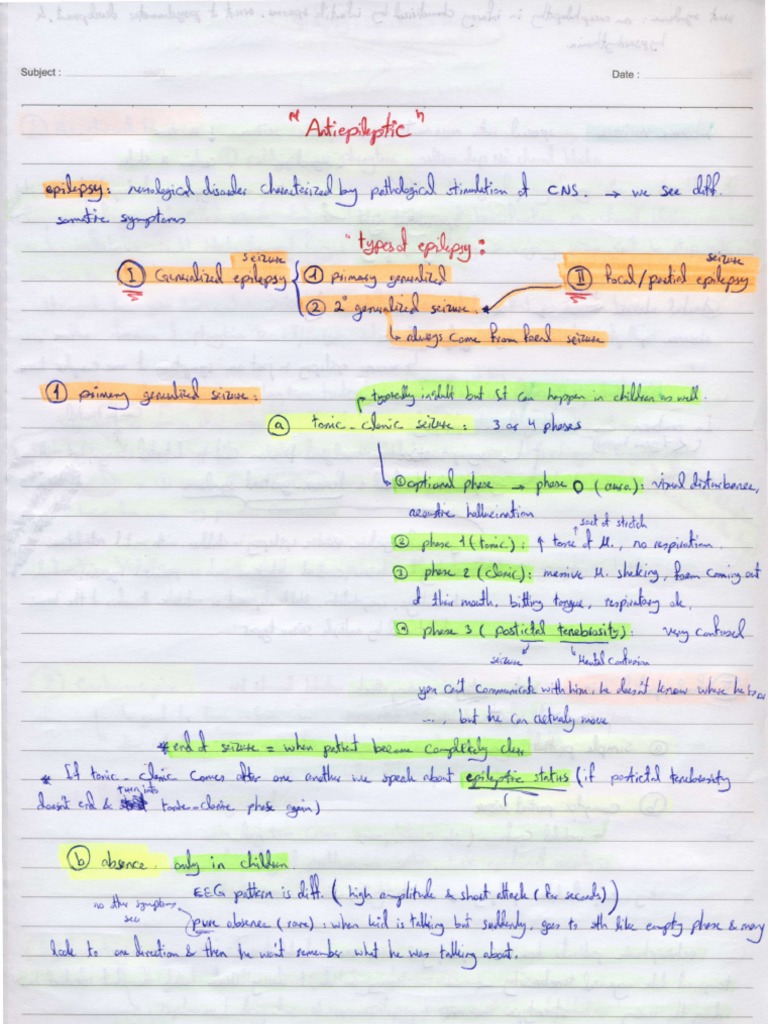 Subject :
Date :
"Antiepileptic"
epilepsy: neurological disorder characterized by pathological stimulation of CNS. → we see diff.
somatic symptoms
"types of epilepsy:
I Generalized epilepsy seizure
1 primary generalized
2 2° generalized seizure.
↳ always come from focal seizure
II focal/partial epilepsy seizure
1 primary generalized seizure:
typically in adult but it can happen in children as well.
a tonic-clonic seizure: 3 or 4 phases
optional phase → phase 0 (aura): visual disturbance,
acoustic hallucination
sort of stretch
2 phase 1 (tonic): ↑ tone of M., no respiration.
3 phase 2 (clonic): massive M. shaking, foam coming out
of their mouth, bitting tongue, respiratory ok,
phase 3 (postictal tenebrosity): very confused
seizure Mental confusion
you can't communicate with him, he doesn't know where he is
..., but he can actually move
* end of seizure = when patient become completely clear
* If tonic-clonic comes after one another we speak about epileptic status (if postictal tenebrosity
doesn't end & turn into tonic-clonic phase again)
b absence. only in children.
EEG pattern is diff. (high amplitude & short attack (for seconds))
no other symptoms
pure absence (rare): when kid is talking but suddenly, goes to sth like empty phase & may
look to one direction & then he won't remember what he was talking about.